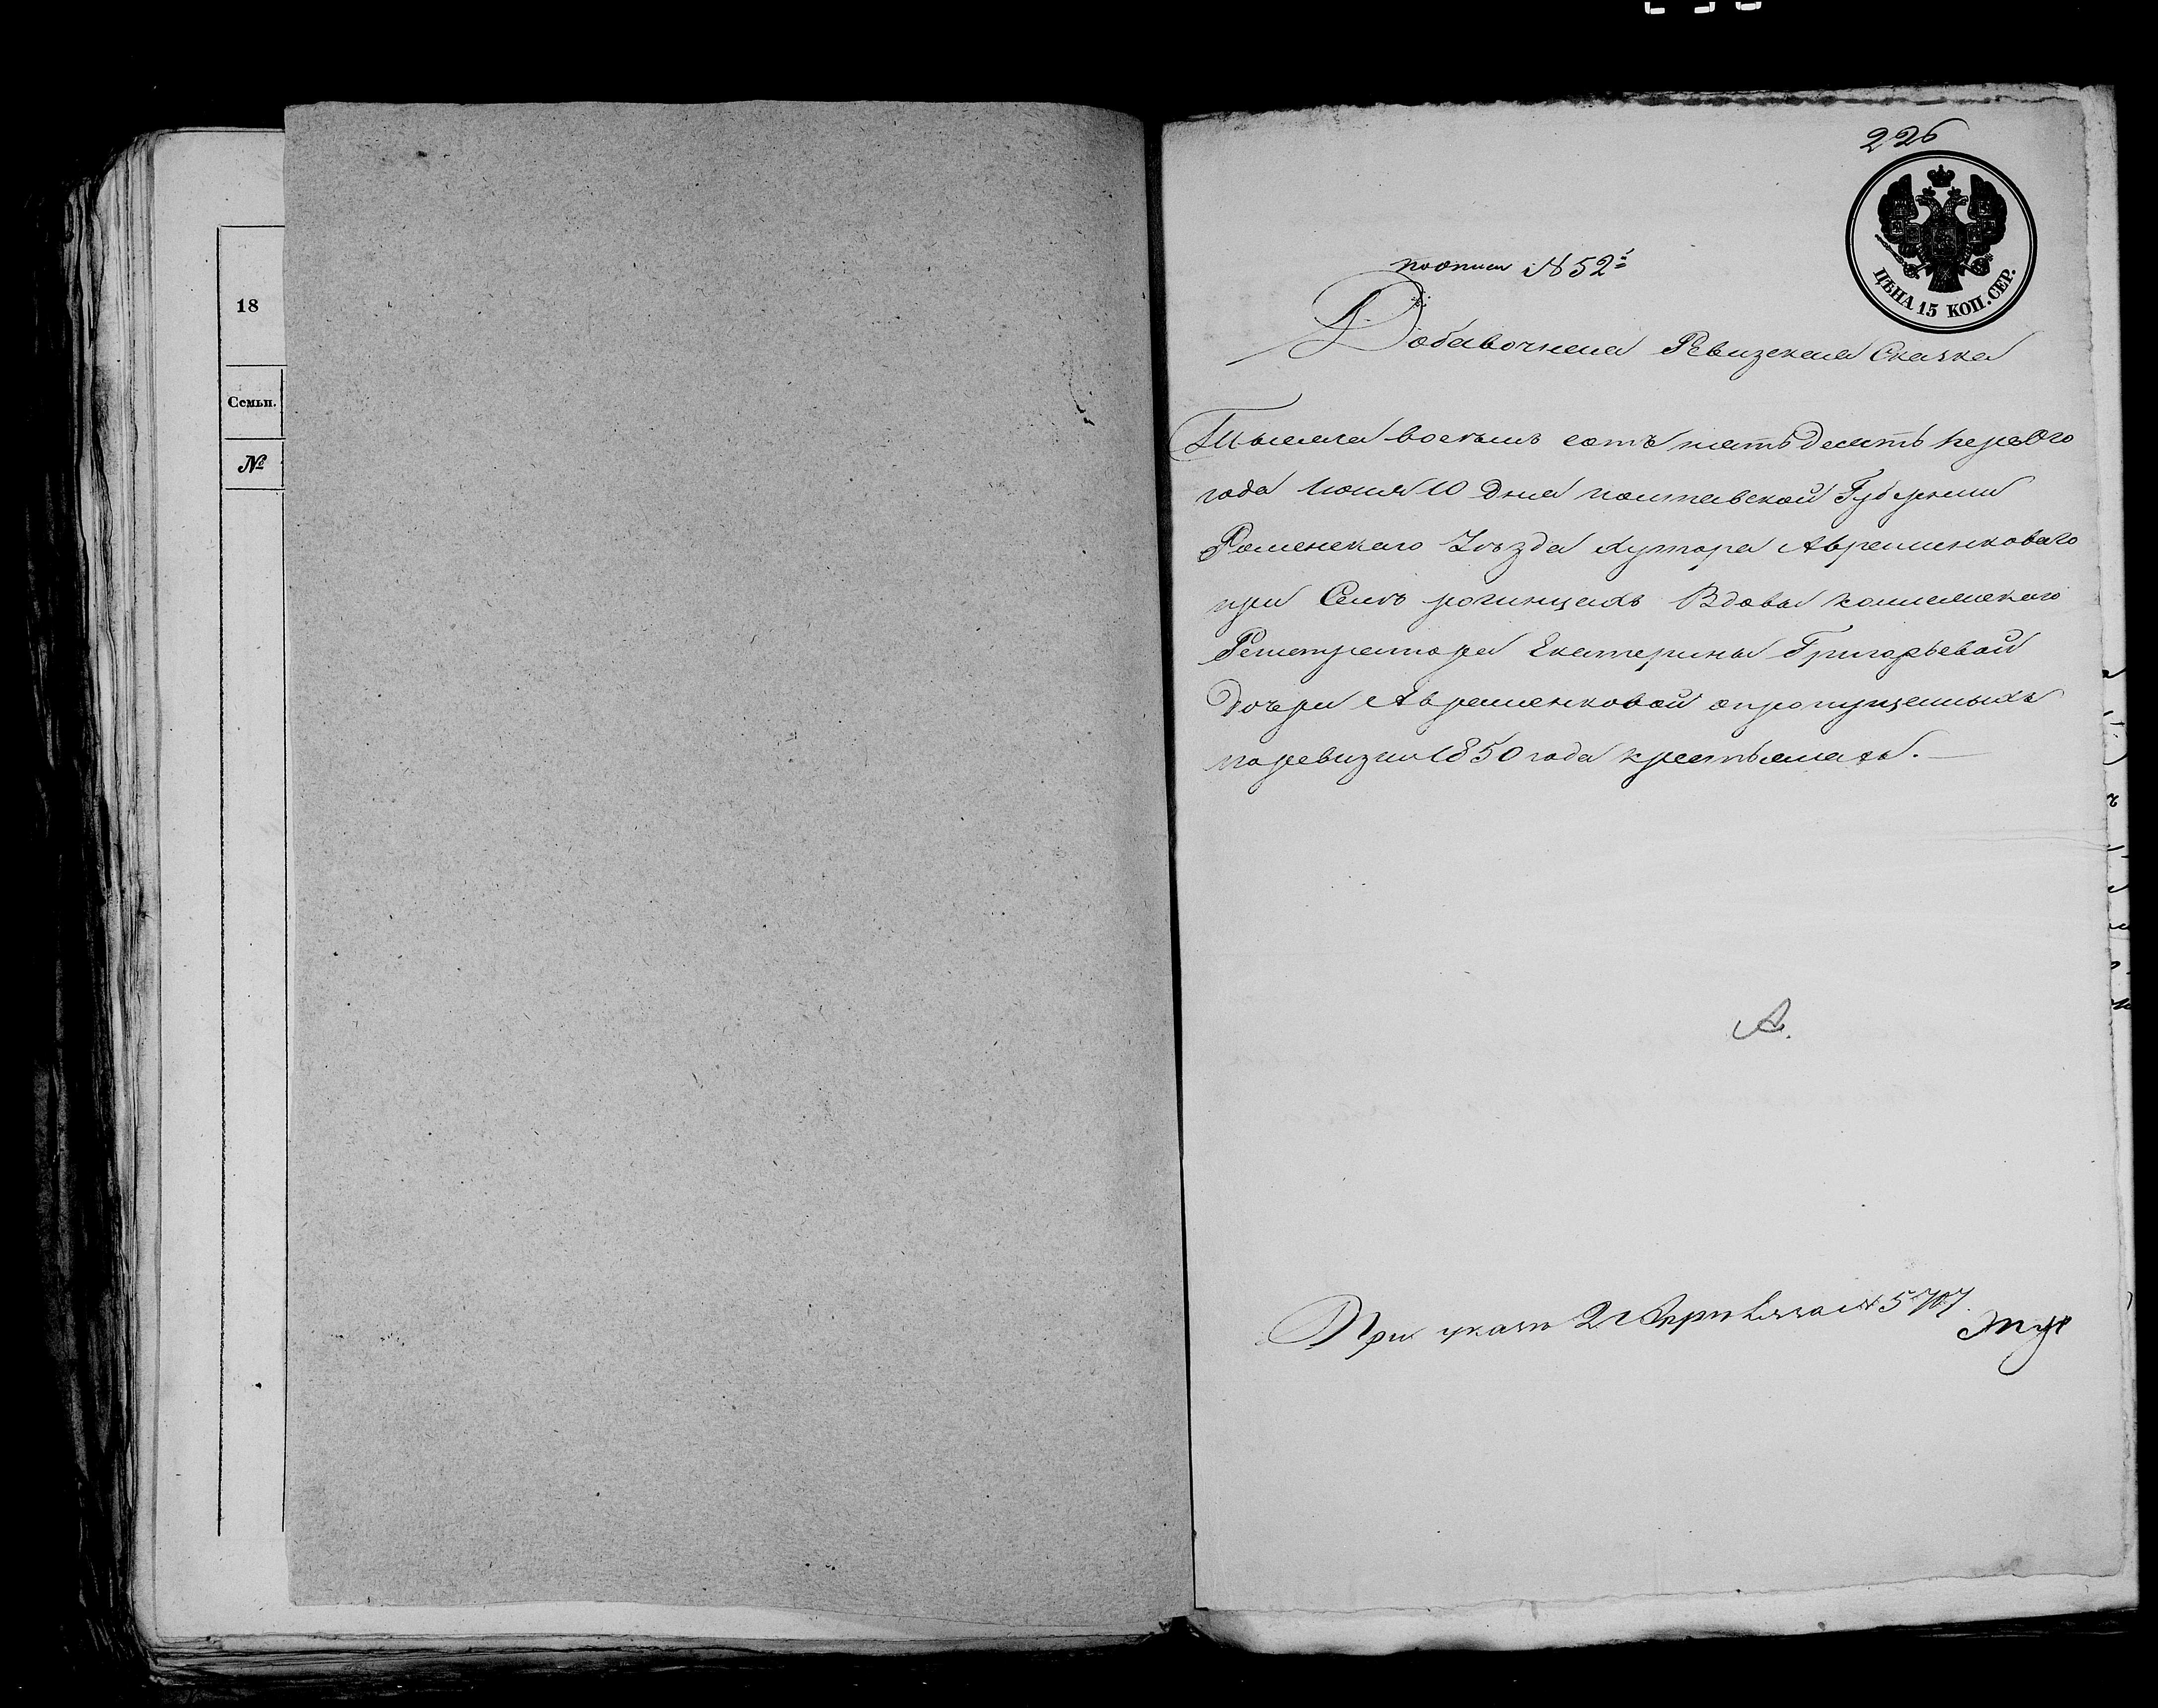 18
Семьи.
№
226
ЦѢНА 15 КОП. СЕР.
по описи № 52й
Добавочная Ревизская Сказка
Тысяча восемь сотъ пятьдесятъ перваго
года Июня 10 дня полтавской Губернии
Роменскаго Уѣзда хутора Авраменковаго
при Селѣ рогинцахъ Вдовы колежскаго
Регистратора Екатерины Григорьевой
дочери Авраменковой опропущенныхъ
поревизии 1850 года крестьянахъ.
А.
При указѣ № 5707